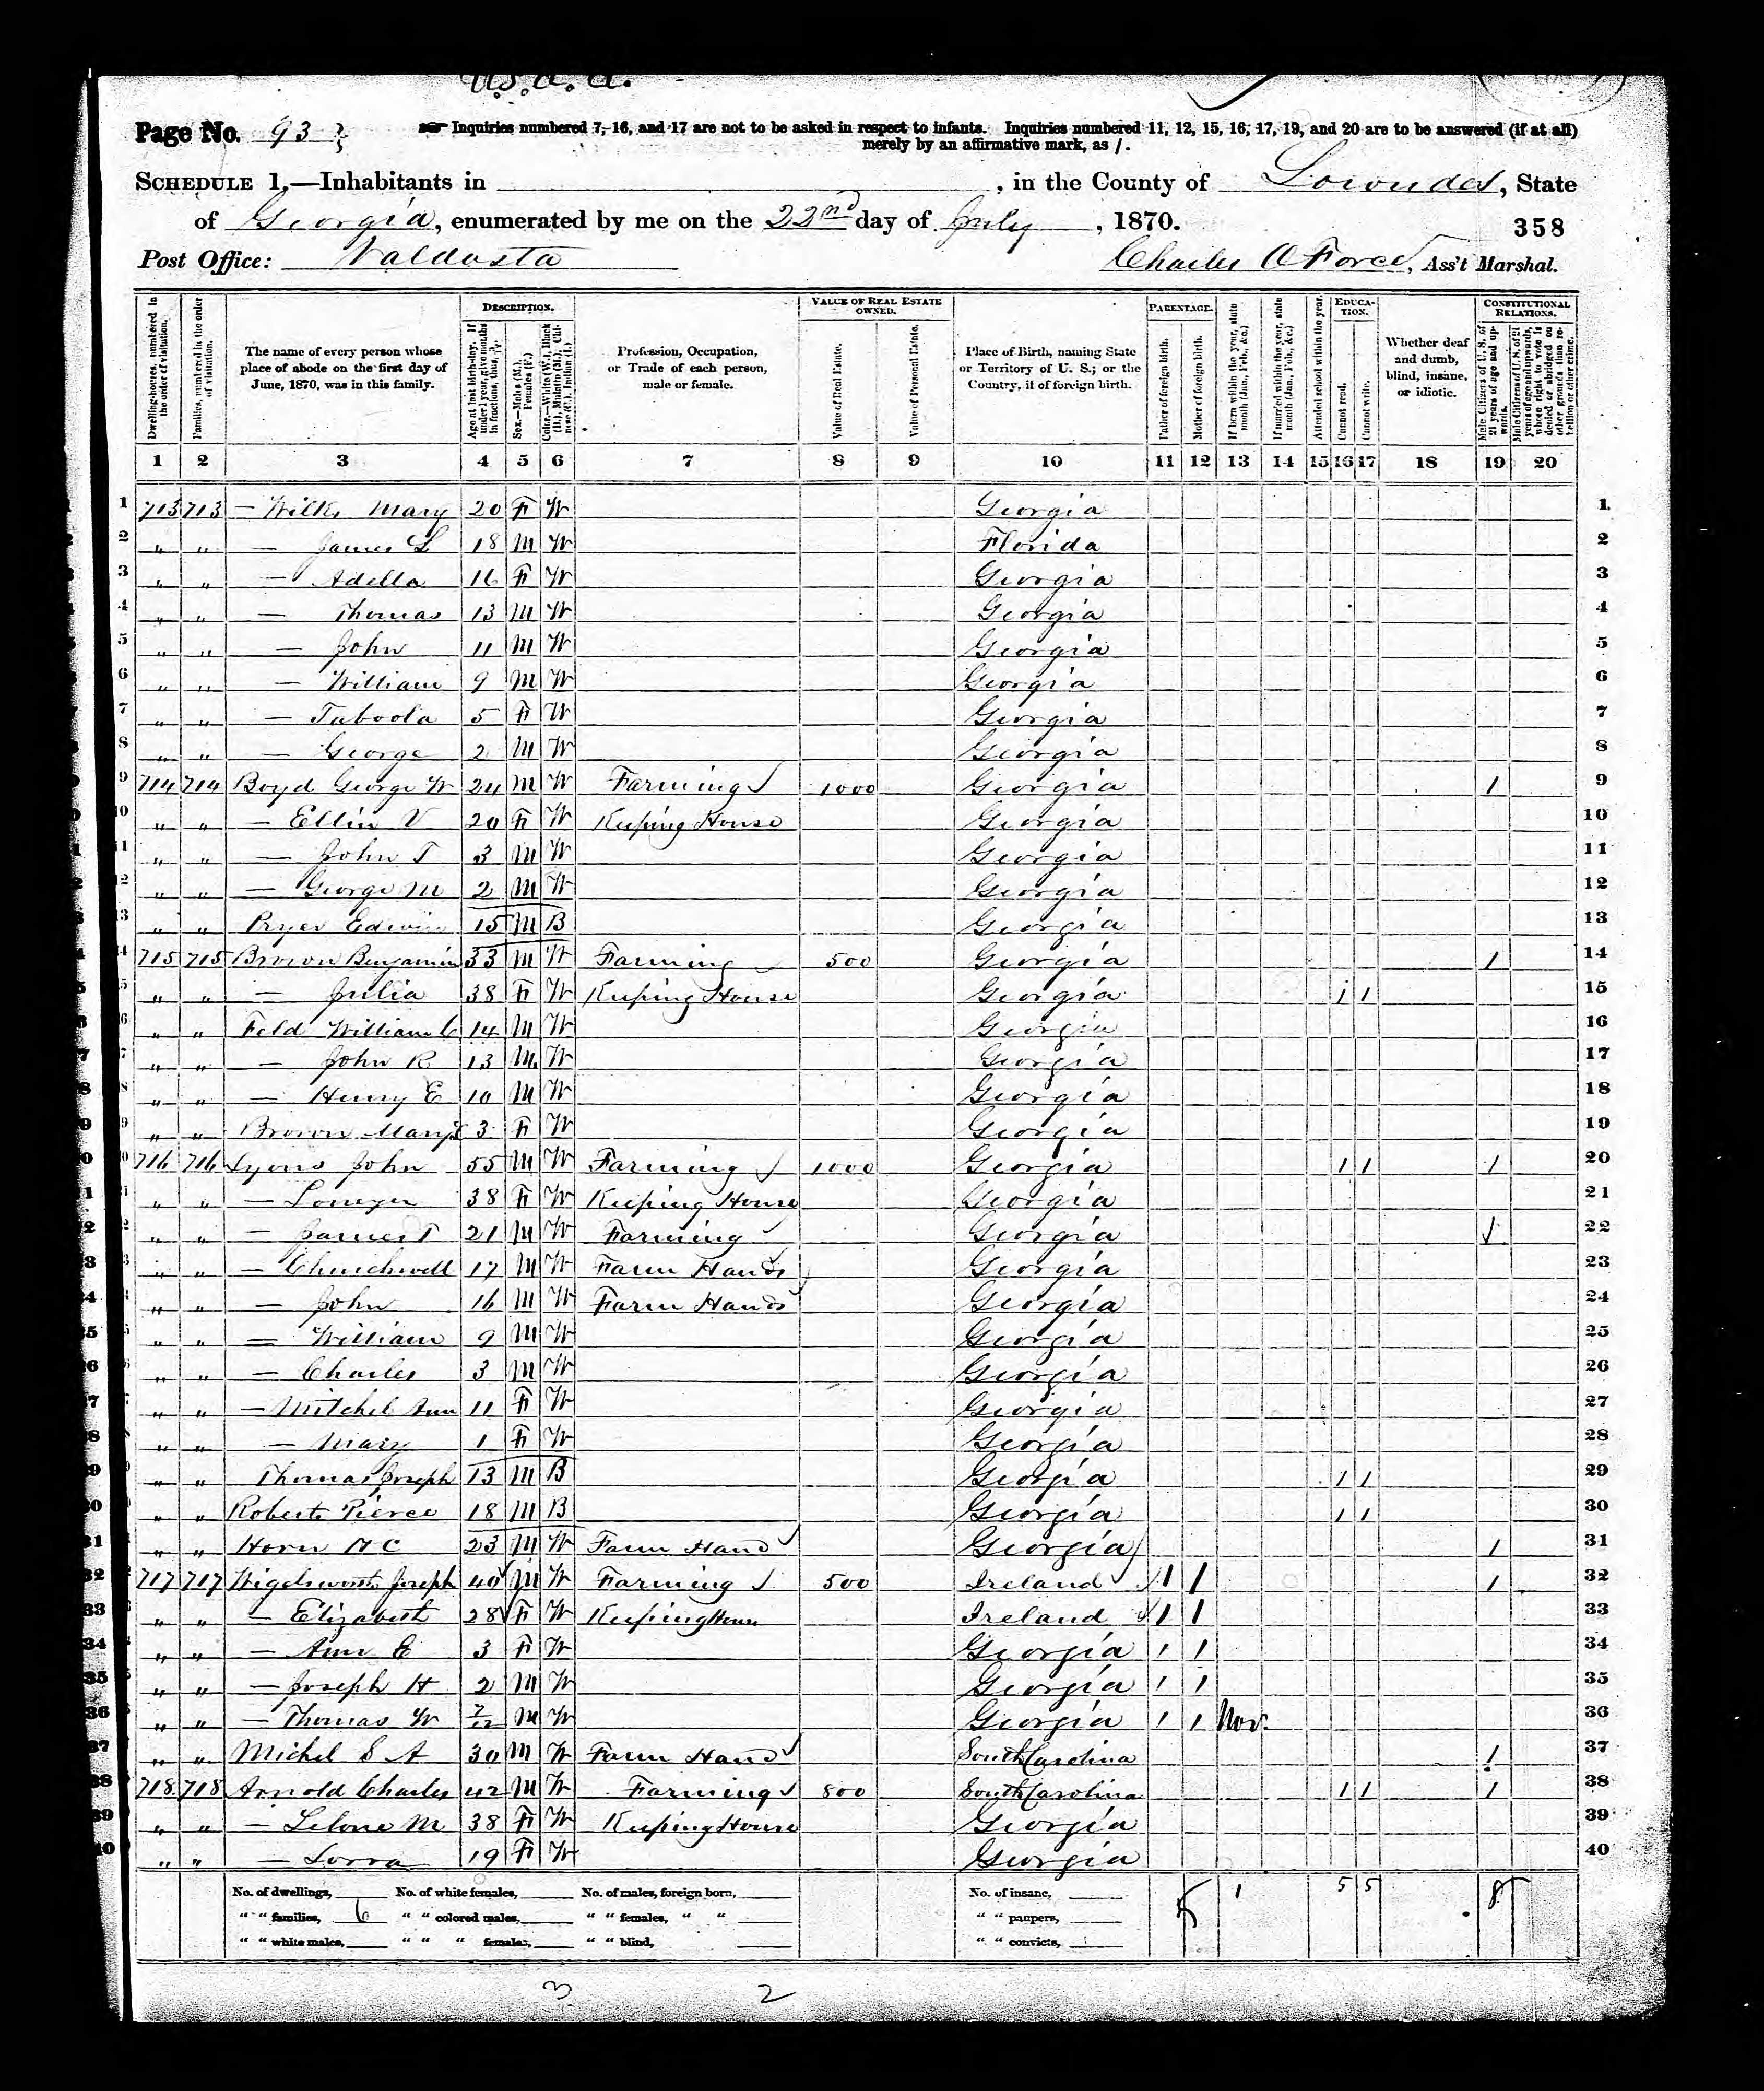 U.S.A.
Page No. 93
Inquiries numbered 7, 16, and 17 are not to be asked in respect to infants. Inquiries numbered 11, 12, 15, 16, 17, 19, and 20 are to be answered (if at all)
merely by an affirmative mark, as /.
SCHEDULE 1.—Inhabitants in , in the County of Lowndes, State
of Georgia, enumerated by me on the 22nd day of July, 1870.
358
Post Office: Valdosta
Charles O Force, Ass't Marshal.
Dwelling-houses, numbered in the order of visitation.
Families, numbered in the order of visitation.
The name of every person whose place of abode on the first day of June, 1870, was in this family.
DESCRIPTION.
Age at last birth-day. If under 1 year, give months in fractions, thus,
Sex.—Males (M.), Females (F.)
Color.—White (W.), Black (B.), Mulatto (M.), Chinese (C.), Indian (I.)
Profession, Occupation, or Trade of each person, male or female.
VALUE OF REAL ESTATE OWNED.
Value of Real Estate.
Value of Personal Estate.
Place of Birth, naming State or Territory of U. S.; or the Country, if of foreign birth.
PARENTAGE.
Father of foreign birth.
Mother of foreign birth.
If born within the year, state month (Jan., Feb., &c.)
If married within the year, state month (Jan., Feb., &c.)
Attended school within the year.
EDUCATION.
Cannot read.
Cannot write.
Whether deaf and dumb, blind, insane, or idiotic.
CONSTITUTIONAL RELATIONS.
Male Citizens of U. S. of 21 years of age and upwards.
Male Citizens of U. S. of 21 years of age and upwards, whose right to vote is denied or abridged on other grounds than rebellion or other crime.
1 2 3 4 5 6 7 8 9 10 11 12 13 14 15 16 17 18 19 20
1 713 713 — Wilks Mary 20 F W Georgia 1
2 " " — James L 18 M W Florida 2
3 " " — Adella 16 F W Georgia 3
4 " " — Thomas 13 M W Georgia 4
5 " " — John 11 M W Georgia 5
6 " " — William 9 M W Georgia 6
7 " " — Taboola 5 F W Georgia 7
8 " " — George 2 M W Georgia 8
9 714 714 Boyd George W 24 M W Farming 1000 Georgia 1 9
10 " " — Ellin V 20 F W Keeping House Georgia 10
11 " " — John T 3 M W Georgia 11
12 " " — George M 2 M W Georgia 12
13 " " Pryer Edwin 15 M B Georgia 13
14 715 715 Brown Benjamin 33 M W Farming 500 Georgia 1 14
15 " " — Julia 38 F W Keeping House Georgia 1 1 15
16 " " Feld William C 14 M W Georgia 16
17 " " — John R 13 M W Georgia 17
18 " " — Henry E 10 M W Georgia 18
19 " " Brown Mary 3 F W Georgia 19
20 716 716 Lyons John 55 M W Farming 1000 Georgia 1 1 1 20
21 " " — 38 F W Keeping House Georgia 21
22 " " — James T 21 M W Farming Georgia 1 22
23 " " — Churchwell 17 M W Farm Hand Georgia 23
24 " " — John 16 M W Farm Hand Georgia 24
25 " " — William 9 M W Georgia 25
26 " " — Charles 3 M W Georgia 26
27 " " — Mitchel Ann 11 F W Georgia 27
28 " " — Mary 1 F W Georgia 28
29 " " Thomas Joseph 13 M B Georgia 1 1 29
30 " " Roberts Pierce 18 M B Georgia 1 1 30
31 " " Horn H C 23 M W Farm Hand Georgia 1 31
32 717 717 Wigelsworth Joseph 40 M W Farming 500 Ireland 1 1 1 32
33 " " — Elizabeth 28 F W Keeping House Ireland 1 1 33
34 " " — Ann E 3 F W Georgia 1 1 34
35 " " — Joseph H 2 M W Georgia 1 1 35
36 " " — Thomas W 7/12 M W Georgia 1 1 Nov. 36
37 " " Michel S A 30 M W Farm Hand South Carolina 1 37
38 718 718 Arnold Charles 42 M W Farming 800 South Carolina 1 1 1 38
39 " " — Lelone M 38 F W Keeping House Georgia 39
40 " " — Lorra 19 F W Georgia 40
No. of dwellings, No. of white females, No. of males, foreign born, No. of insane, 5 1 5 5 8
" " families, 6 " " colored males, " " females, " " " " paupers,
" " white males, " " " females, " " blind, " " convicts,
3 2